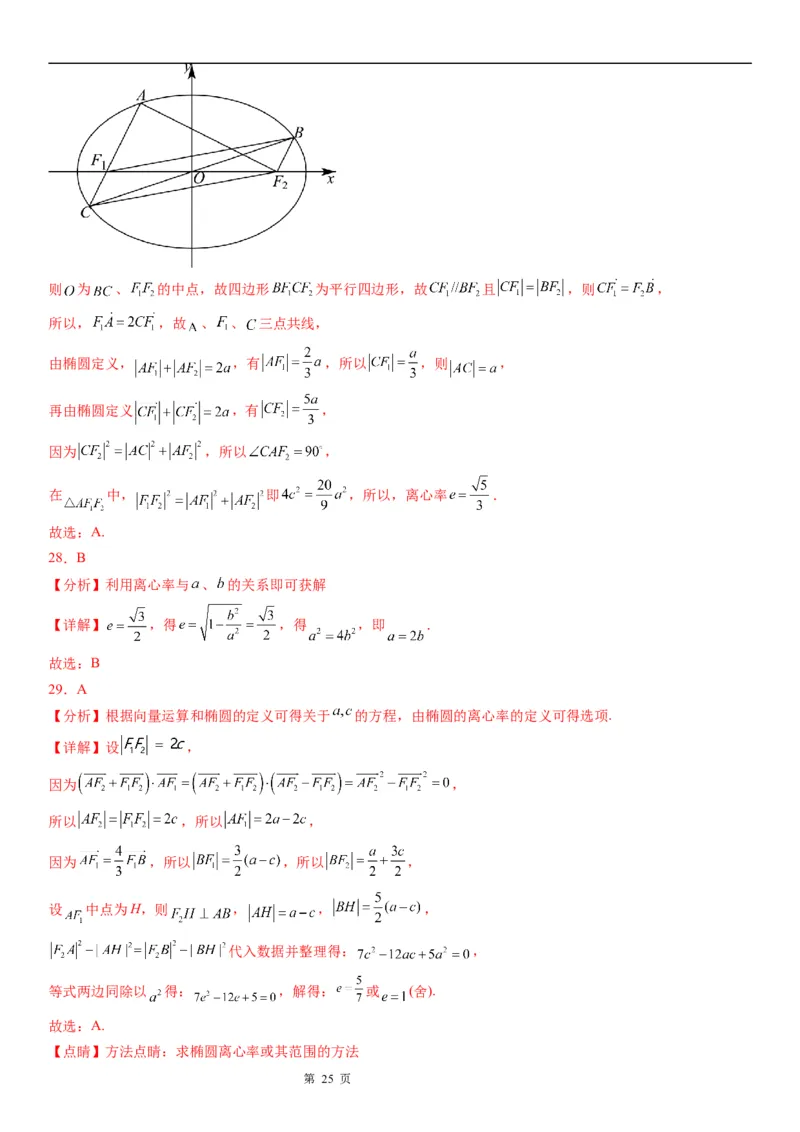 y
A
B
F₁
O
F₂
x
C
则O为BC、F₁F₂的中点，故四边形BF₁CF₂为平行四边形，故CF₁//BF₂且|CF₁|=|BF₂|，则CF₁=F₂B，
所以，F₁A=2CF₁，故A、F₁、C三点共线，
由椭圆定义，|AF₁|+|AF₂|=2a，有|AF₁|=2/3 a，所以|CF₁|=a/3，则|AC|=a，
再由椭圆定义|CF₁|+|CF₂|=2a，有|CF₂|=5a/3，
因为|CF₂|²=|AC|²+|AF₂|²，所以∠CAF₂=90°，
在△AF₁F₂中，|F₁F₂|²=|AF₁|²+|AF₂|²即4c²=20/9 a²，所以，离心率e=√5/3．
故选：A.
28．B
【分析】利用离心率与a、b的关系即可获解
【详解】e=√3/2，得e=√(1-b²/a²)=√3/2，得a²=4b²，即a=2b．
故选：B
29．A
【分析】根据向量运算和椭圆的定义可得关于a,c的方程，由椭圆的离心率的定义可得选项.
【详解】设|F₁F₂|=2c，
因为(AF₂+F₁F₂)·AF₁=(AF₂+F₁F₂)·(AF₂-F₁F₂)=AF₂²-F₁F₂²=0，
所以|AF₂|=|F₁F₂|=2c，所以|AF₁|=2a-2c，
因为AF₁=4/3 F₁B，所以|BF₁|=3/2(a-c)，所以|BF₂|=a/2+3c/2，
设AF₁中点为H，则F₂H⊥AB，|AH|=a-c，|BH|=5/2(a-c)，
|F₂A|²-|AH|²=|F₂B|²-|BH|²代入数据并整理得：7c²-12ac+5a²=0，
等式两边同除以a²得：7e²-12e+5=0，解得：e=5/7或e=1(舍).
故选：A.
【点睛】方法点睛：求椭圆离心率或其范围的方法
第 25 页